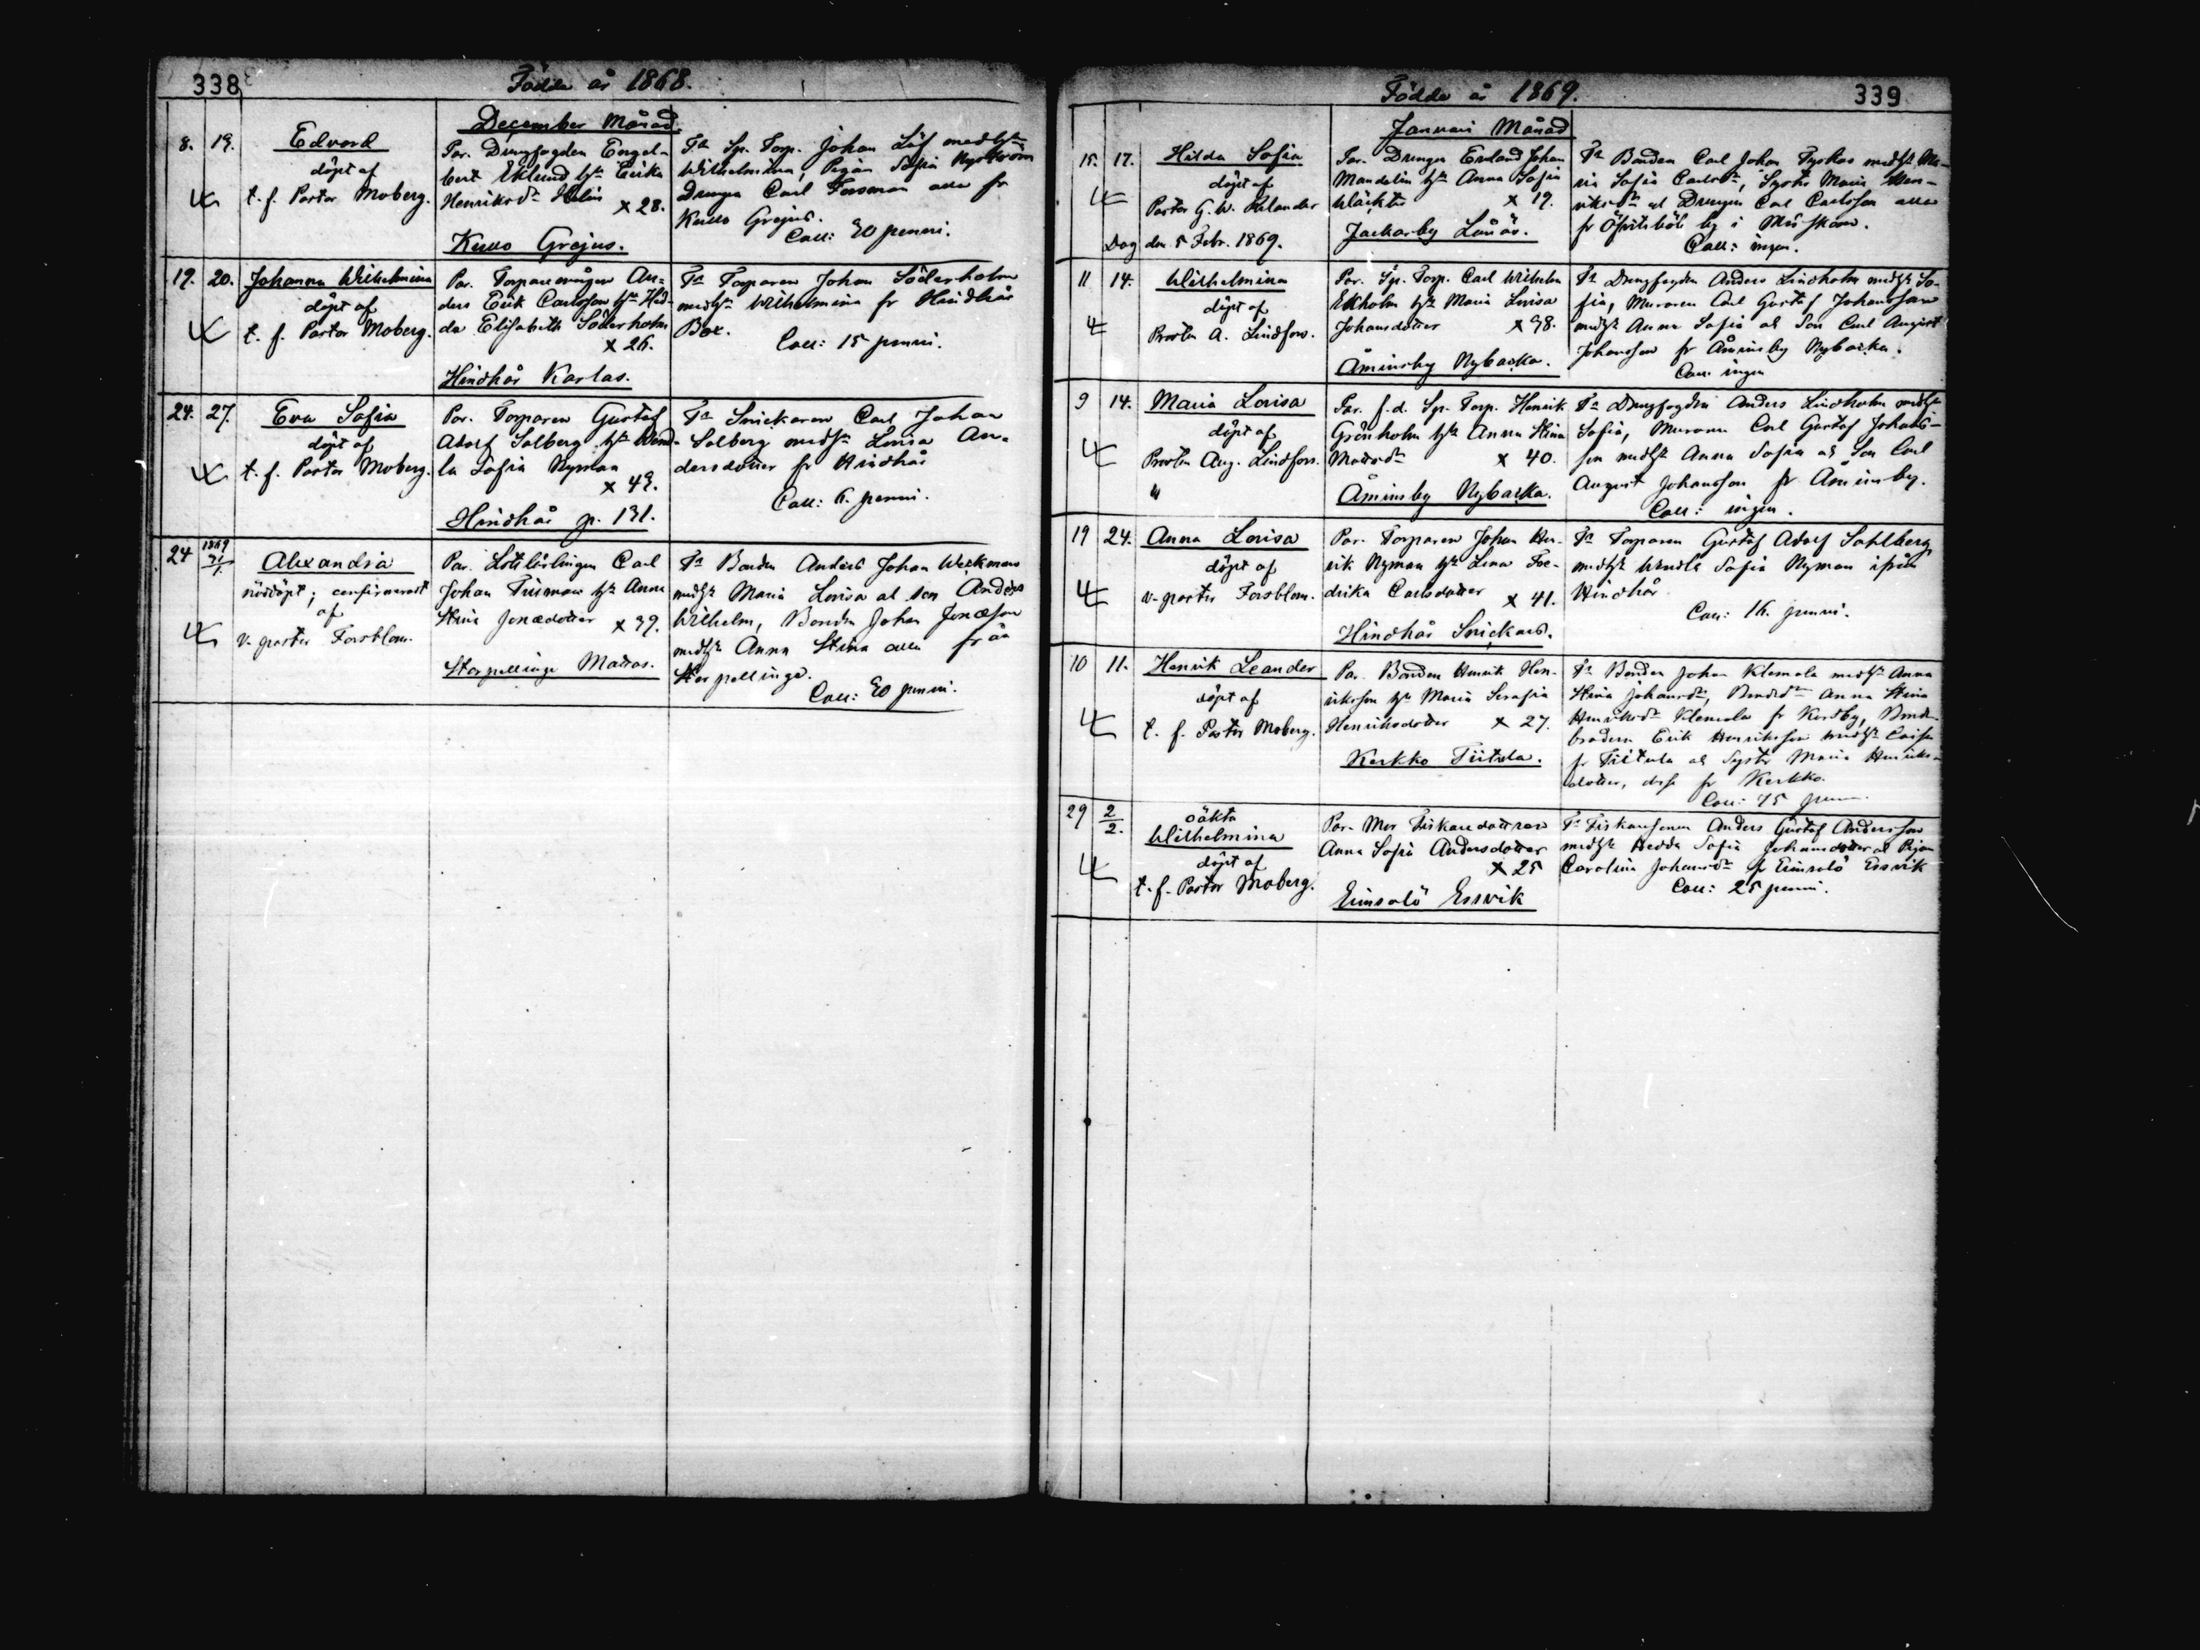 338
Födda år 1868.
December Månad.
8. 19.
Edvard
döpt af
t. f. Pastor Moberg.
Par. Drengfogden Engel-
bert Eklund h:u Erika
Henriksd:r Helin x 28.
Kullo Grejus.
F:a Sp. Torp. Johan Löf med h:u
Wilhelmina, Pigan Sofia Nyström
Drengen Carl Forsman alla fr
Kullo Grejus.
Coll: 30 penni.
19. 20.
Johanna Wilhelmina
döpt af
t. f. Pastor Moberg.
Par. Torparemågen An-
ders Erik Carlsson h:u Hed-
da Elisabeth Söderholm
x 26.
Hindhår Karlas.
F:a Torparen Johan Söderholm
med h:u Wilhelmina fr Hindhår
Box.
Coll: 15 penni.
24. 27.
Eva Sofia
döpt af
t. f. Pastor Moberg.
Par. Torparen Gustaf
Adolf Salberg h:u Wend-
la Sofia Nyman
x 43.
Hindhår p. 131.
F:a Snickaren Carl Johan
Salberg med h:u Lovisa An-
dersdotter fr Hindhår
Coll: 6. penni.
24 1869
Alexandra
nöddöpt; confirmerat
af
v. pastor Forsblom.
Par. Carl
Johan Friman h:u Anna
Stina Jonædotter x 39.
Storpellinge Mattas.
F:a Bonden Anders Johan Weckman
med h:u Maria Lovisa al son Anders
Wilhelm, Bonden Johan Jonæson
med h:u Anna Stina alla från
Storpellinge.
Coll: 20 penni.
Födde år 1869.
339
Januari Månad
15. 17.
Hilda Sofia
döpt af
Pastor G. W. Relander
Dag den 5 Febr. 1869.
Par. Drengen Erland Johan
Mandelin h:u Anna Sofia
x 19.
Jackarby Lånäs.
F:a Bonden Carl Johan Tyskas med h:u Ma-
ria Sofia Carlsd:r, Syster Maria Hen-
riksd:r al Drengen Carl Carlsson alla
fr by i
Coll: ingen.
11 14.
Wilhelmina
döpt af
Prosten A. Lindfors.
Par. Sp. Torp. Carl Wilhelm
Ekholm h:u Maria Lovisa
Johansdotter x 38.
Åminsby Nybacka.
F:a Drengfogden Anders Lindholm med h:u So-
fia, Muraren Carl Gustaf Johansson
med h:u Anna Sofia al Son Carl August
Johansson fr Åminsby Nybacka.
Coll: ingen
9 14.
Maria Lovisa
döpt af
Prosten Aug. Lindfors.
"
Par. f.d. Sp. Torp. Henrik
Grönholm h:u Anna Stina
Mattsd:r x 40.
Åminsby Nybacka.
F:a Drengfogden Anders Lindholm med h:u
Sofia, Muraren Carl Gustaf Johans-
son med h:u Anna Sofia al Son Carl
August Johansson fr Åminsby.
Coll: ingen.
19 24.
Anna Lovisa
döpt af
v. pastor Forsblom.
Par. Torparen Johan Hen-
rik Nyman h:u Lena Fre-
drika Carlsdotter x 41.
Hindhår Snickars.
F:a Torparen Gustaf Adolf Sahlberg
med h:u Wendla Sofia Nyman ifrån
Hindhår
Coll: 16. penni.
10 11.
Henrik Leander
döpt af
t. f. Pastor Moberg.
Par. Bonden Henrik Hen-
riksson h:u Maria Serafia
Henriksdotter x 27.
Kerkko Tiitola.
F:a Bonden Johan Klemola med h:u Anna
Stina Johansd:r, Bonded:r Anna Stina
Henriksd:r Klemola fr Kortby, Bonde-
brodern Erik Henriksson med h:u Caisa
fr Tiitola al Syster Maria Henriks-
dotter, fr Kerkko.
Coll: 75 penni
29 2/2.
oäkta
Wilhelmina
döpt af
t. f. Pastor Moberg.
Par. Mor Fiskaredottren
Anna Sofia Andersdotter
x 25
Eimsalö Essvik
F:a Fiskaresonen Anders Gustaf Andersson
med h:u Hedda Sofia Johansdotter al Pigan
Carolina Johansd:r fr Eimsalö Essvik
Coll: 25 penni.